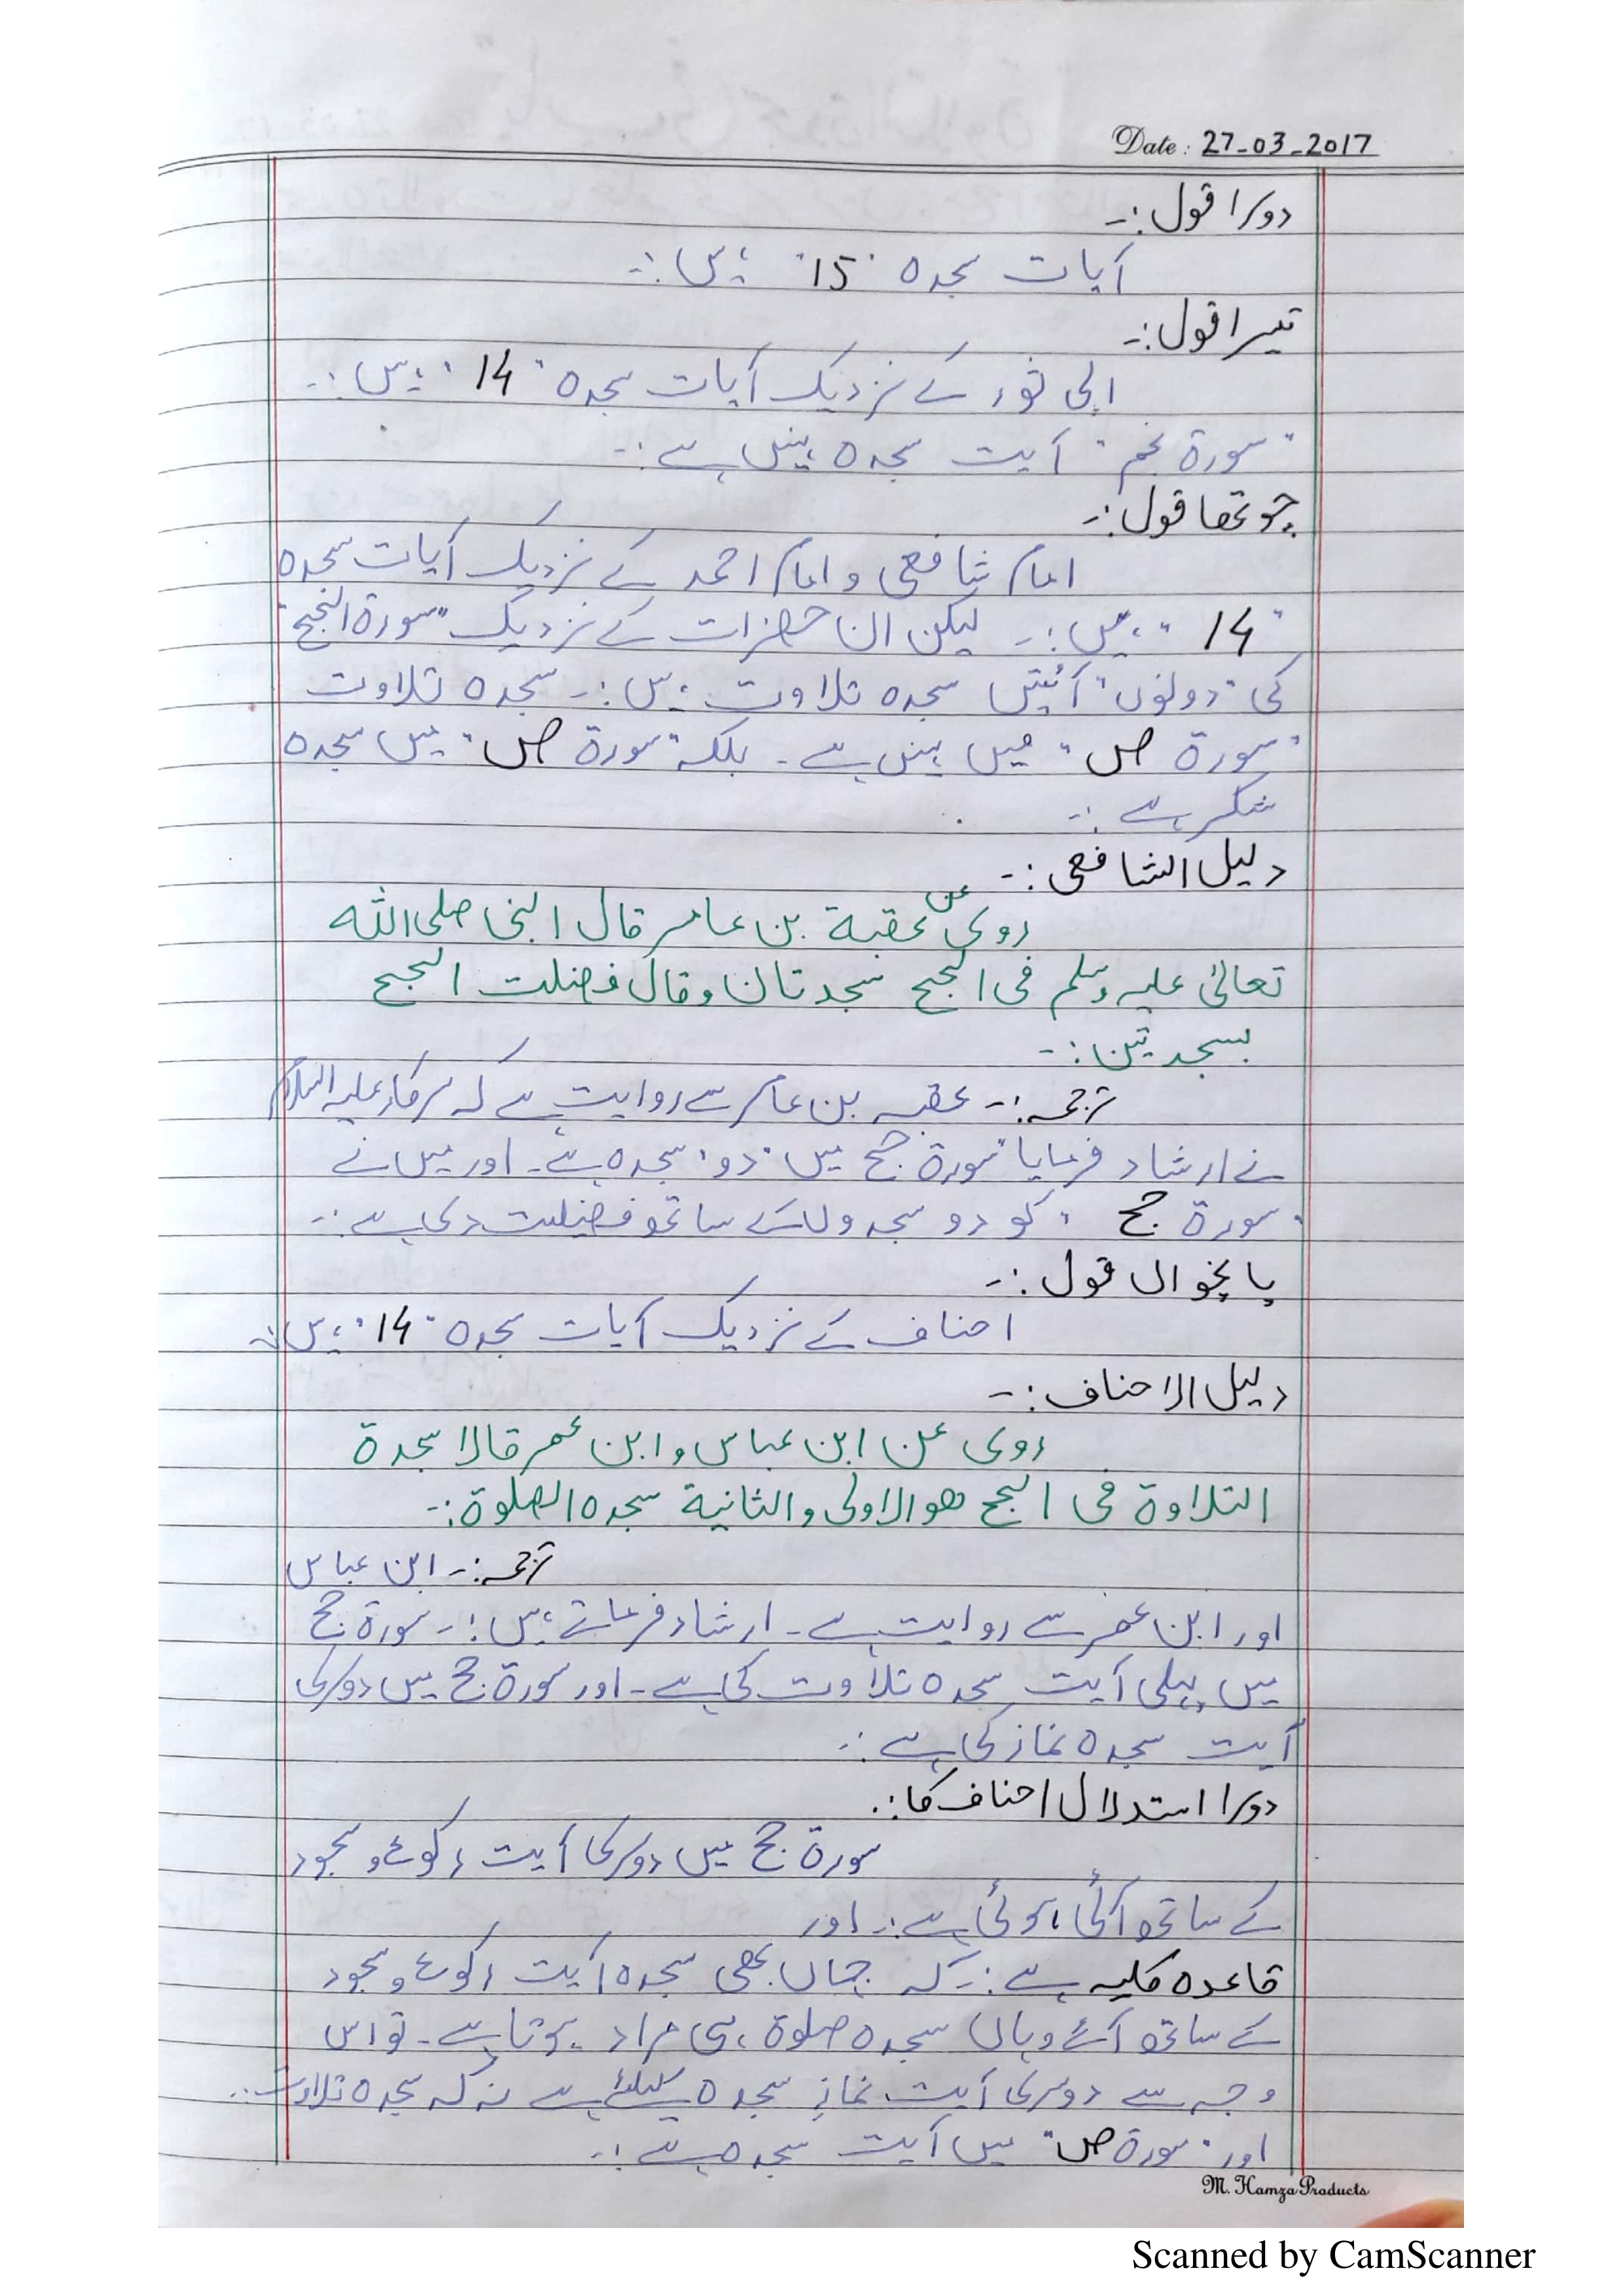 Date : 27-03-2017
دوسرا قول :-
آیات سجدہ "15" ہیں :-
تیسرا قول :-
ابی ثور کے نزدیک آیات سجدہ "14" ہیں :-
"سورۃ نجم" آیت سجدہ نہیں ہے :-
چوتھا قول :-
امام شافعی و امام احمد کے نزدیک آیات سجدہ
"14" ہیں :- لیکن ان حضرات کے نزدیک "سورۃ الحج"
کی "دونوں" آیتیں سجدہ تلاوت ہیں :- سجدہ تلاوت
"سورۃ ص" میں نہیں ہے - بلکہ "سورۃ ص" میں سجدہ
شکر ہے :-
دلیل الشافعی :-
روی عن عقبة بن عامر قال النبی صلی اللہ
تعالیٰ علیہ وسلم فی الحج سجدتان وقال فضلت الحج
بسجدتین :-
ترجمہ :- عقبہ بن عامر سے روایت ہے کہ سرکار علیہ السلام
نے ارشاد فرمایا "سورۃ حج میں "دو" سجدہ ہے - اور میں نے
"سورۃ حج" کو دو سجدوں کے ساتھ فضیلت دی ہے :-
پانچواں قول :-
احناف کے نزدیک آیات سجدہ "14" ہیں :-
دلیل الاحناف :-
روی عن ابن عباس وابن عمر قالا سجدة
التلاوة فی الحج ھو الاولی والثانیة سجدہ الصلوة :-
ترجمہ :- ابن عباس
اور ابن عمر سے روایت ہے - ارشاد فرماتے ہیں :- سورۃ حج
میں پہلی آیت سجدہ تلاوت کی ہے - اور سورۃ حج میں دوسری
آیت سجدہ نماز کی ہے :-
دوسرا استدلال احناف کا :-
سورۃ حج میں دوسری آیت رکوع و سجود
کے ساتھ آئی ہوئی ہے :- اور
قاعدہ کلیہ ہے :- کہ جہاں بھی سجدہ آیت رکوع و سجود
کے ساتھ آئے وہاں سجدہ صلوۃ ہی مراد ہوتا ہے - تو اس
وجہ سے دوسری آیت نماز سجدہ کیلئے ہے نہ کہ سجدہ تلاوت :-
اور "سورۃ ص" میں آیت سجدہ ہے :-
M. Hamza Products
Scanned by CamScanner